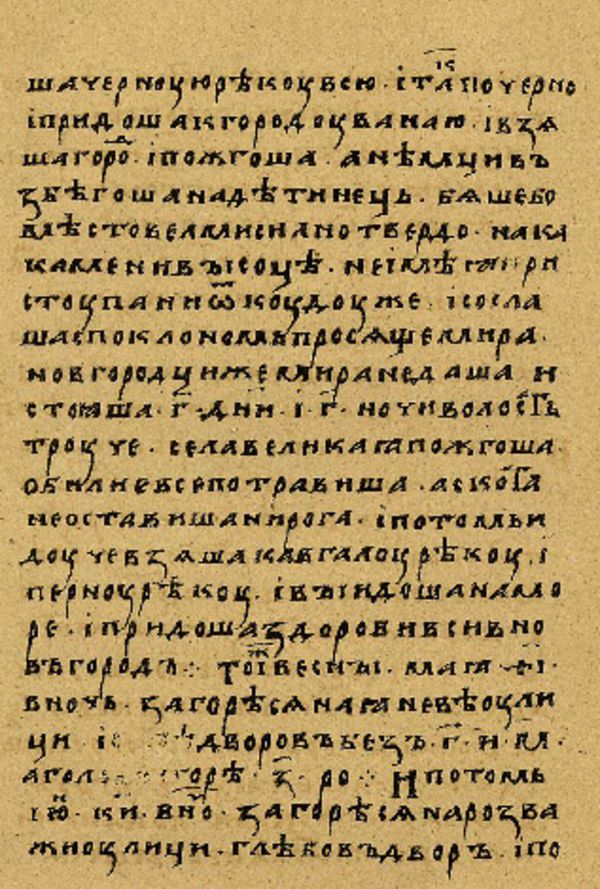 шачерноуюрѣкоувсю · ꙇтакꙇпочерно
ꙇпридошакгородоуванаю · ꙇвзѧ
шагоро · ꙇпожгоша · анѣмциивъ
збѣгошанадѣтинець · бѧшебо
мѣстовелмисилнотвердо · нака
каменивысоцѣ · неꙇмѣꙗ при
стоупаниѿкоудоуже · ꙇсосла
шаспоклономьпросѧщемира ·
новгородцижемиранедаша и
стоꙗша · г · дни · ꙇ · г · ночиволость
троуче · селавеликаꙗпожгоша ·
обилиевсепотравиша · аскота
неоставишанирога · ꙇпотомьи
доучевзѧшакавгалоурѣкоу · ꙇ
перноурѣкоу · ꙇвыꙇдошанамо
ре · ꙇпридошаздоровивсивно
въгородъ ⁘ тоꙇжвесны · маꙗ ·
вночь · загорѣсѧнаꙗневѣоули
ци дворовъбезъ · г · и · м ·
аголь горѣ · з · ро · Ипотомь
ꙇю · ки · вно · загорѣсѧнарозва
жиоулици · глѣбовъдворъ · ꙇпо